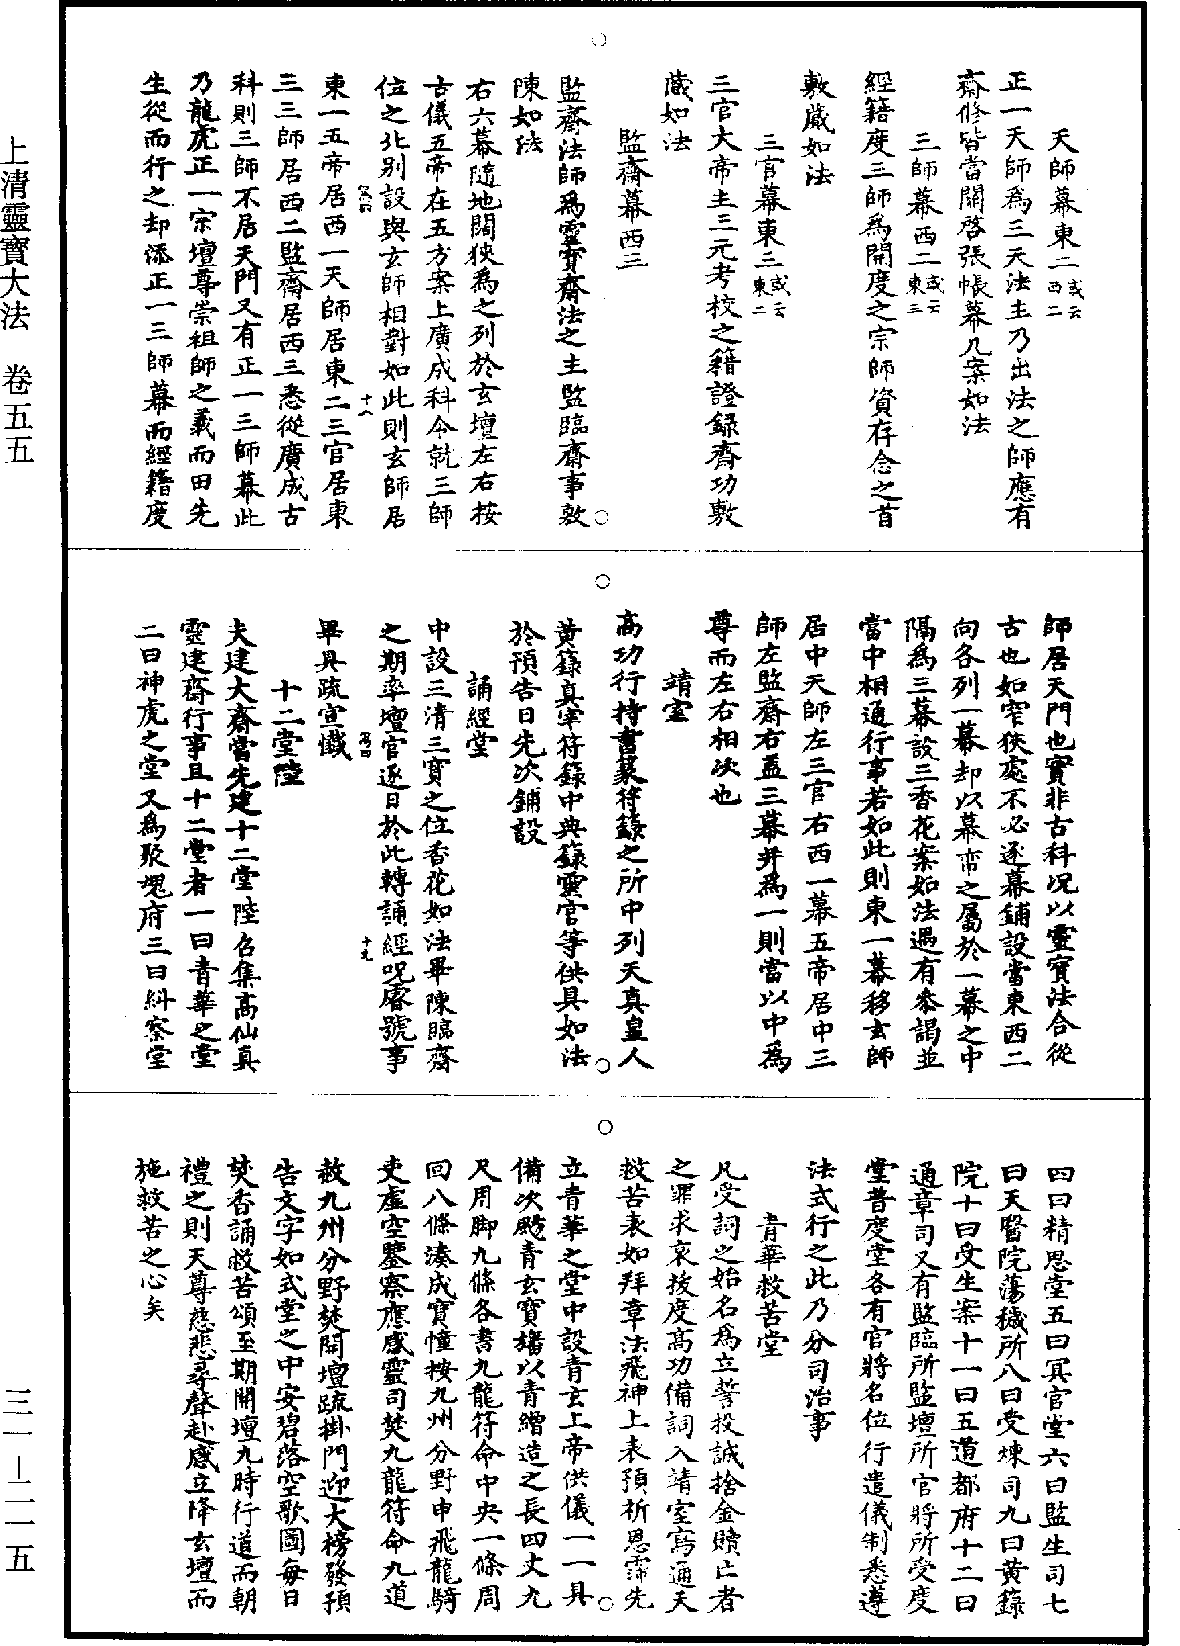 上清靈寶大法　卷五五
三一—二一五
天師幕東二或云西二
正一天師為三天法主乃出法之師應有
齋修皆當關啓張帳幕几案如法
三師幕西二或云東三
經籍度三師為開度之宗師資存念之首
敷蕆如法
三官幕東三或云東二
三官大帝主三元考校之籍證錄齋功敷
蕆如法
監齋幕西三
監齋法師為靈寶齋法之主監臨齋事敷
陳如法
右六幕隨地闊狹為之列於玄壇左右按
古儀五帝在五方案上廣成科令就三師
位之北別設與玄師相對如此則玄師居
東一五帝居西一天師居東二三官居東
三三師居西二監齋居西三悉從廣成古
科則三師不居天門又有正一三師幕此
乃龍虎正一宗壇尊崇祖師之義而田先
生從而行之却添正一三師幕而經籍度
師居天門也實非古科况以靈寶法合從
古也如窄狹處不必逐幕鋪設當東西二
向各列一幕却以幕帟之屬於一幕之中
隔為三幕設三香花案如法遇有參謁並
當中相通行事若如此則東一幕移玄師
居中天師左三官右西一幕五帝居中三
師左監齋右蓋三幕并為一則當以中為
尊而左右相次也
靖室
高功行持書篆符籙之所中列天真皇人
黃籙真宰符籙中典籙靈官等供具如法
於預告日先次鋪設
誦經堂
中設三清三寶之位香花如法畢陳臨齋
之期率壇官逐日於此轉誦經呪嚮號事
畢具疏宣懺
十二堂陛
夫建大齋當先建十二堂陛召集高仙真
靈建齋行事且十二堂者一曰青華之堂
二曰神虎之堂又為聚魂府三曰糾察堂
四曰精思堂五曰冥官堂六曰監生司七
曰天醫院蕩穢所八曰受煉司九曰黃籙
院十曰受生案十一曰五道都府十二曰
通章司又有監臨所監壇所官將所受度
堂普度堂各有官將名位行遣儀制悉遵
法式行之此乃分司治事
青華救苦堂
凡受詞之始名為立誓投誠捨金贖亡者
之罪求哀拔度高功備詞入靖室寫通天
救苦表如拜章法飛神上表預祈恩霈先
立青華之堂中設青玄上帝供儀一一具
備次颺青玄寶旛以青繒造之長四丈九
尺用脚九條各書九龍符命中央一條周
回八條湊成寶幢按九州分野申飛龍騎
吏虛空鑒察應感靈司焚九龍符命九道
赦九州分野焚開壇疏掛門迎大榜發預
告文字如式堂之中安碧落空歌圖每日
焚香誦救苦頌至期開壇九時行道而朝
禮之則天尊慈悲尋聲赴感立降玄壇而
施救苦之心矣